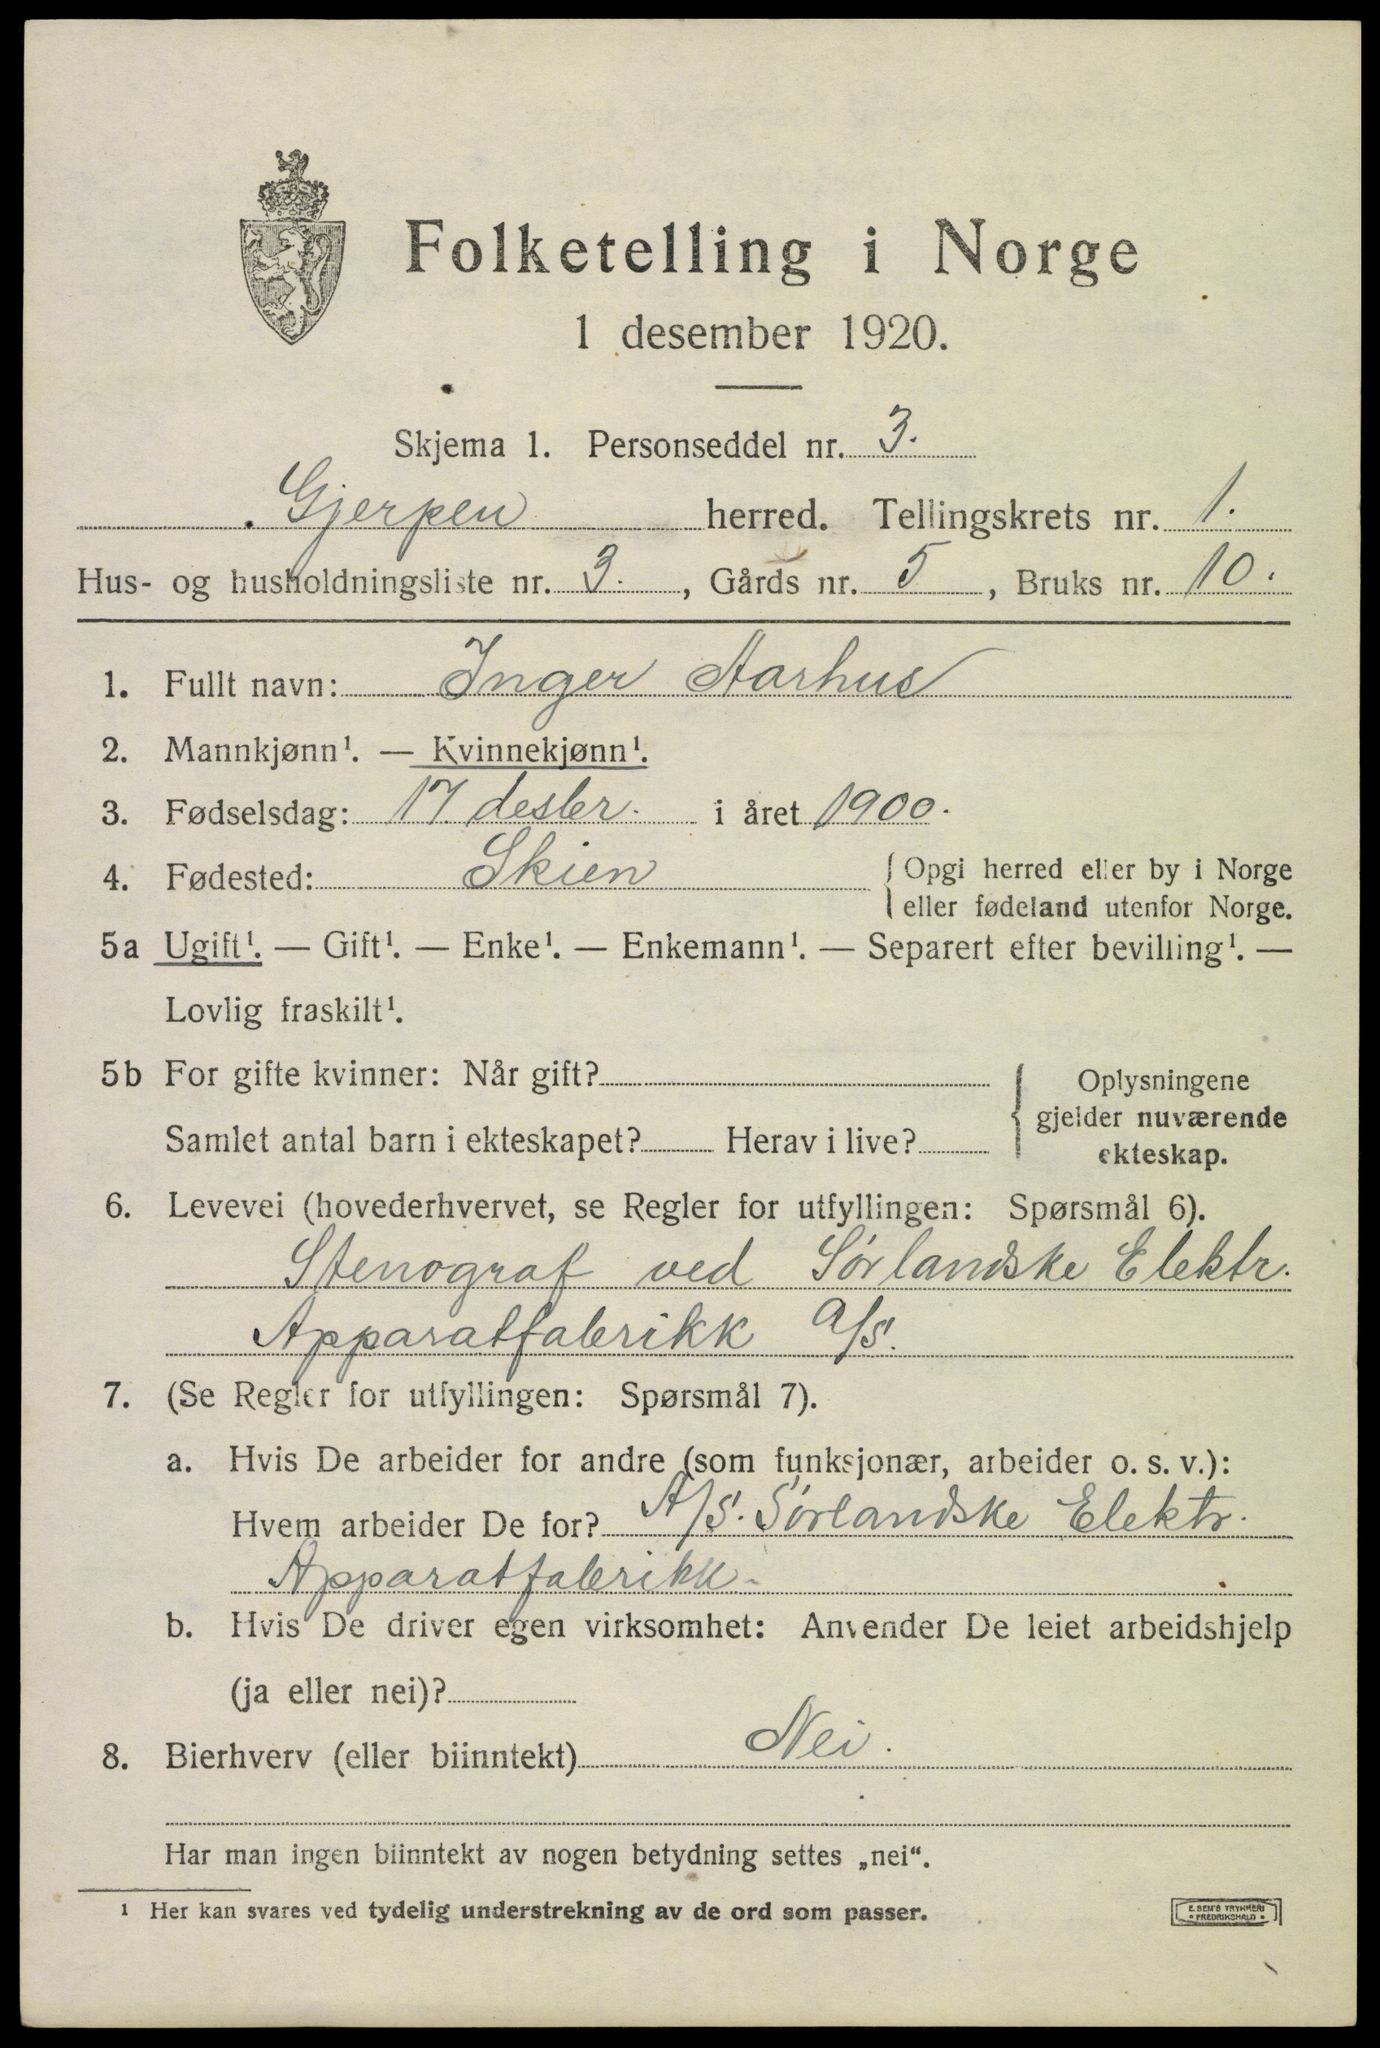 Folketelling i Norge
1 desember 1920.
Skjema 1. Personseddel nr. 3.
Gjerpen herred. Tellingskrets nr. 1.
Hus- og husholdningsliste nr. 3., Gårds nr. 5, Bruks nr. 10.
1. Fullt navn: Inger Aarhus
2. Mannkjønn¹. — Kvinnekjønn¹.
3. Fødselsdag: 17 desbr. i året 1900.
4. Fødested: Skien { Opgi herred eller by i Norge
eller fødeland utenfor Norge.
5a Ugift¹. — Gift¹. — Enke¹. — Enkemann¹. — Separert efter bevilling¹. —
Lovlig fraskilt¹.
5b For gifte kvinner: Når gift? { Oplysningene
gjelder nuværende
Samlet antal barn i ekteskapet? Herav i live?
ekteskap.
6. Levevei (hovederhvervet, se Regler for utfyllingen: Spørsmål 6).
Stenograf ved Sørlandske Elektr.
Apparatfabrikk A/S.
7. (Se Regler for utfyllingen: Spørsmål 7).
a. Hvis De arbeider for andre (som funksjonær, arbeider o. s. v.):
Hvem arbeider De for? A/S. Sørlandske Elektr.
Apparatfabrikk.
b. Hvis De driver egen virksomhet: Anvender De leiet arbeidshjelp
(ja eller nei)?
8. Bierhverv (eller biinntekt) Nei.
Har man ingen biinntekt av nogen betydning settes „nei“.
¹ Her kan svares ved tydelig understrekning av de ord som passer.
E. SEM'S TRYKKERI
• FREDRIKSHALD •